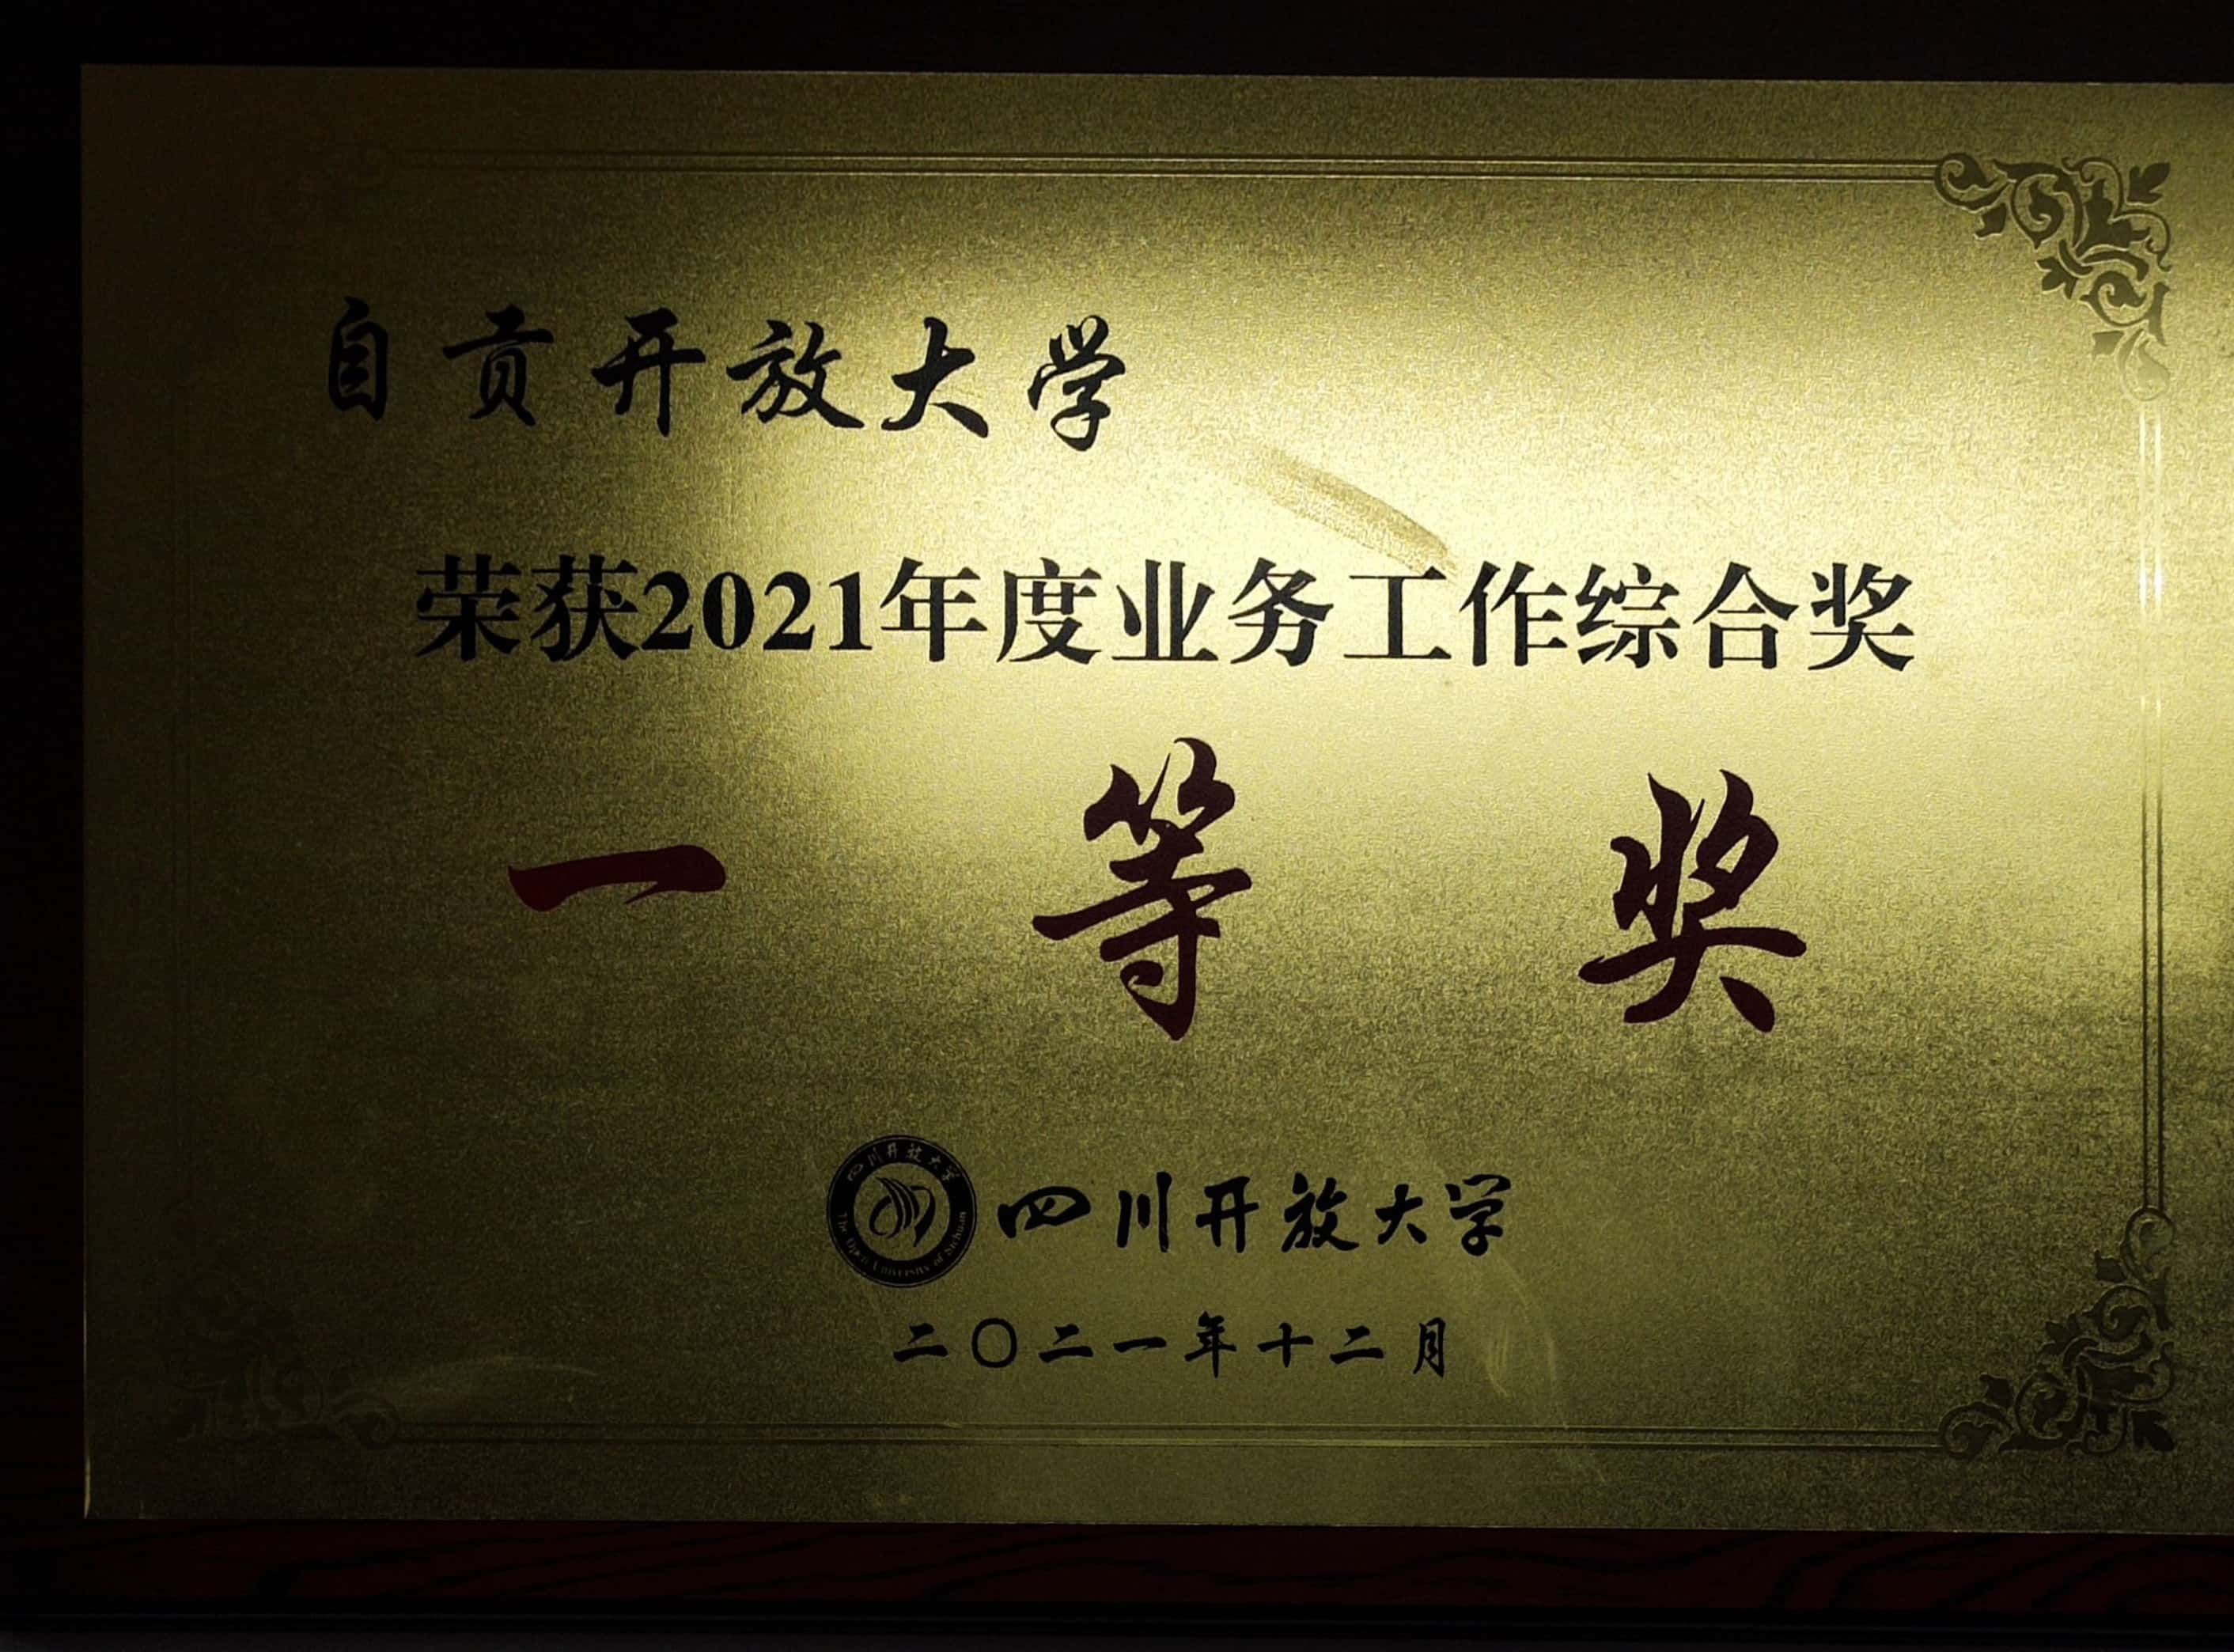 自贡开放大学
荣获2021年度业务工作综合奖
一等奖
四川开放大学
The Open University of Sichuan
四川开放大学
二〇二一年十二月